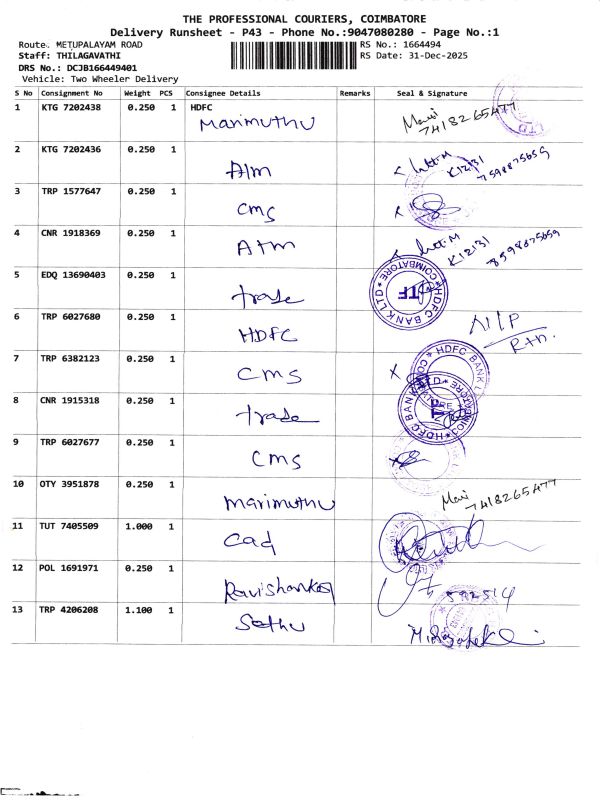 THE PROFESSIONAL COURIERS, COIMBATORE
Delivery Runsheet - P43 - Phone No.:9047080280 - Page No.:1
Route: METUPALAYAM ROAD RS No.: 1664494
Staff: THILAGAVATHI RS Date: 31-Dec-2025
DRS No.: DCJB166449401
Vehicle: Two Wheeler Delivery
S No Consignment No Weight PCS Consignee Details Remarks Seal & Signature
1 KTG 7202438 0.250 1 HDFC
Marimuthu 7418265477
2 KTG 7202436 0.250 1
K12131 7598875659
3 TRP 1577647 0.250 1
cms
4 CNR 1918369 0.250 1
ATM K12131 8598875659
5 EDQ 13690403 0.250 1
trade HDFC BANK LTD COIMBATORE TF
6 TRP 6027680 0.250 1
HDFC Rtn.
7 TRP 6382123 0.250 1
CMS HDFC BANK
8 CNR 1915318 0.250 1
trade HDFC BANK LTD COIMBATORE
9 TRP 6027677 0.250 1
CMS
10 OTY 3951878 0.250 1
Marimuthu 7418265477
11 TUT 7405509 1.000 1
Cad
12 POL 1691971 0.250 1
Ravishankar 592514
13 TRP 4206208 1.100 1
Sethu